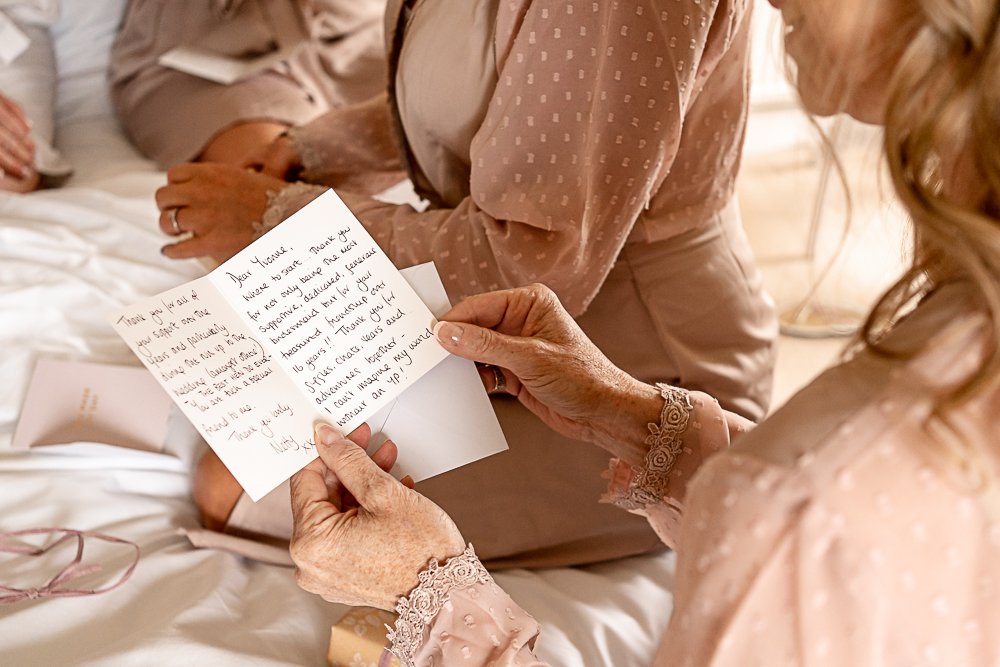 Thank you for all of
your support over the
years and particularly
during the run up to the
wedding (amongst others!)
"THE BEST MEN SO EVER"
You are such a special
friend to me.
Thank you lovely
Natty
xx
Dear Yvonne,
Where to start. Thank you
for not only being the most
supportive, dedicated, generous
bridesmaid but for your
treasured friendship over
16 years!! Thank you for
giggles, chats, tears and
adventures together -
I can't imagine my world
without an YP!